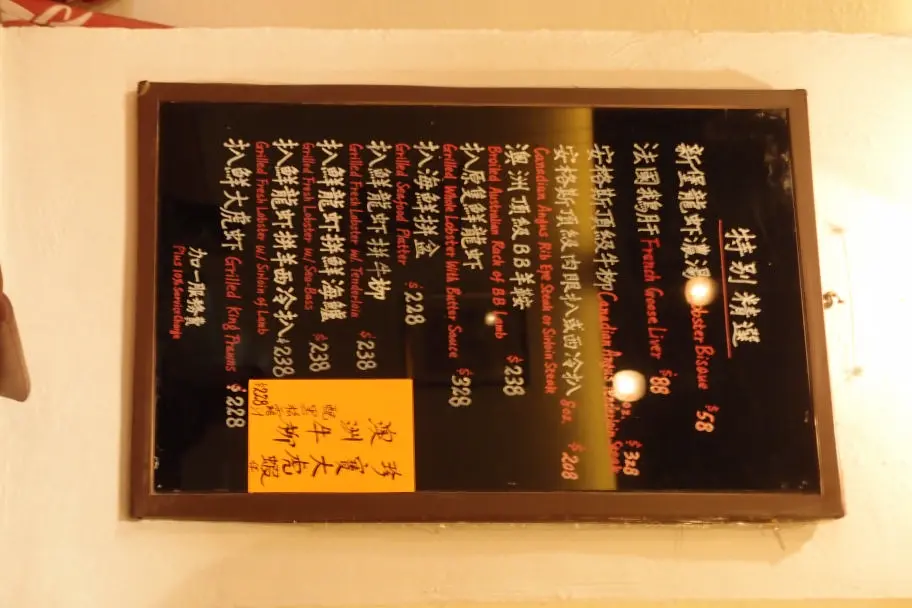 特別精選
新堡龍蝦濃湯 Lobster Bisque $58
法國鵝肝 French Goose Liver $88
安格斯頂級牛柳 Canadian Angus oz. $328
安格斯頂級肉眼扒或西冷扒 8oz. $208
Canadian Angus Rib Eye Steak or Sirloin Steak
澳洲頂級BB羊鞍 $238
Broiled Australian Rack of BB Lamb
扒原隻鮮龍虾 $328
Grilled Whole Lobster With Butter Sauce
扒海鮮拼盆 $228
Grilled Seafood Platter
扒鮮龍虾拼牛柳 $238
Grilled Fresh Lobster w/ Tenderloin
扒鮮龍虾拼鮮海鱸 $238
Grilled Fresh Lobster w/ Sea-Bass
扒鮮龍虾拼羊西冷扒 $238
Grilled Fresh Lobster w/ Sirloin of Lamb
扒鮮大虎虾 Grilled King Prawns $228
加一服務費
Plus 10% Service Charge
珍寶大虎蝦
澳洲牛柳
配黑松露汁
$228